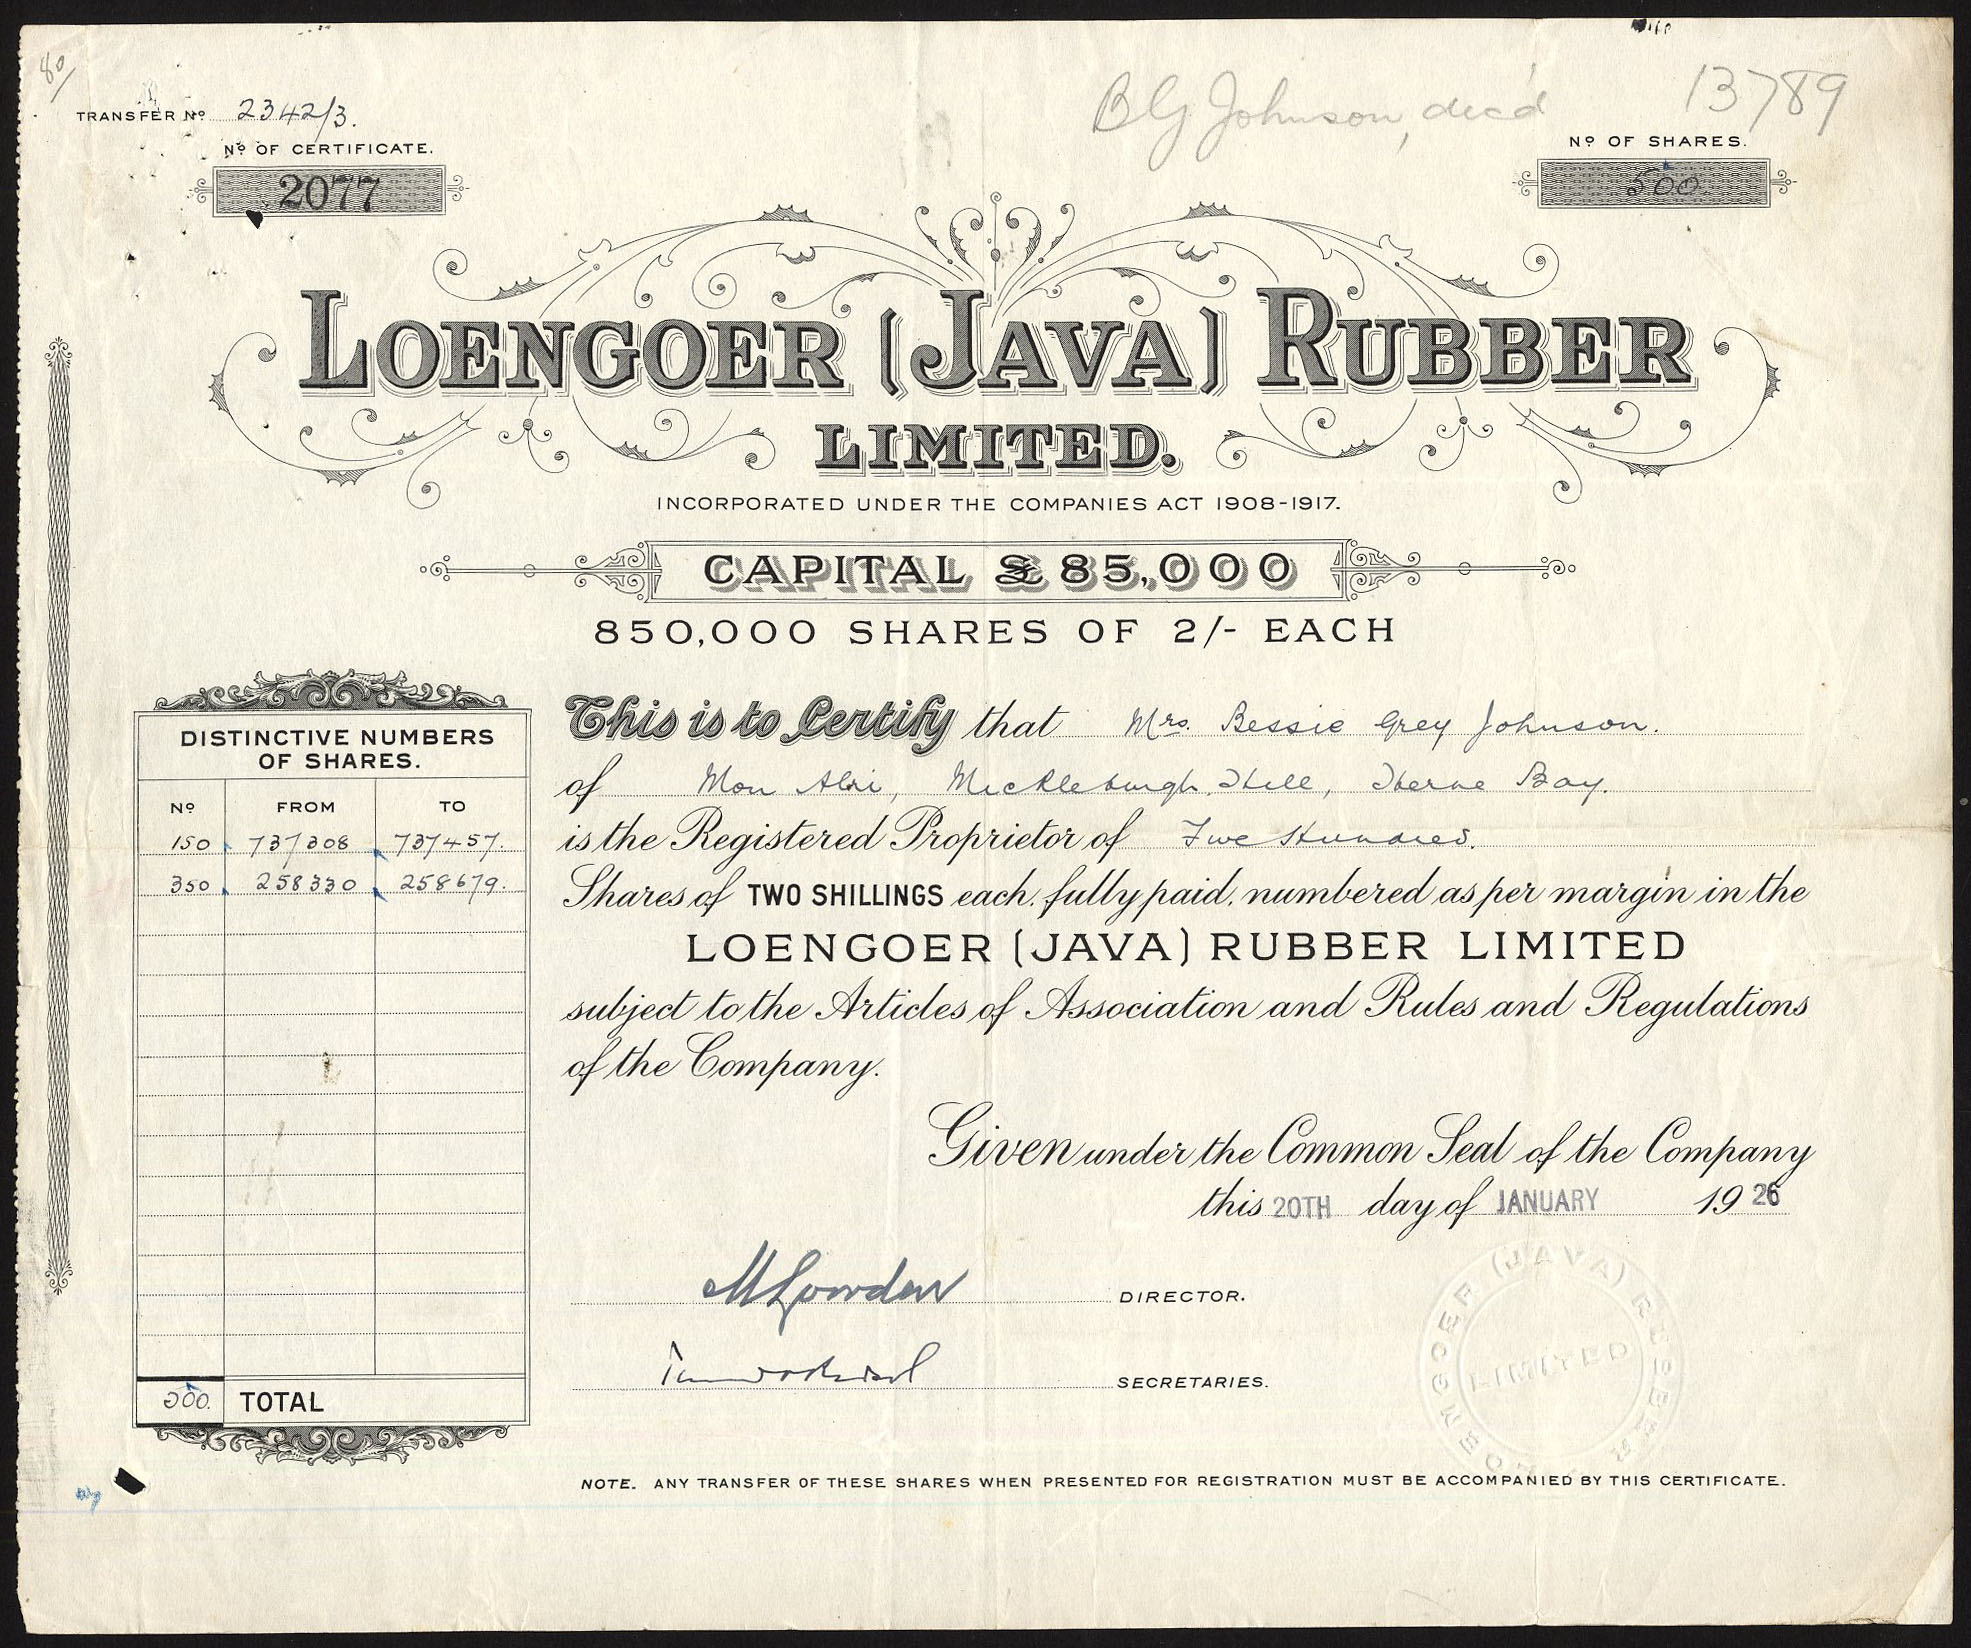 80/
TRANSFER No 2342/3.
B G Johnson, decd
13789
No OF CERTIFICATE.
2077
No OF SHARES.
500
LOENGOER (JAVA) RUBBER
LIMITED.
INCORPORATED UNDER THE COMPANIES ACT 1908-1917.
CAPITAL £85,000
850,000 SHARES OF 2/- EACH
DISTINCTIVE NUMBERS
OF SHARES.
No FROM TO
150 737308 737457.
350 258330 258679.
500. TOTAL
This is to Certify that Mrs. Bessie Grey Johnson.
of Mon Abri, Mickleburgh Hill, Herne Bay.
is the Registered Proprietor of Five Hundred.
Shares of TWO SHILLINGS each, fully paid, numbered as per margin in the
LOENGOER (JAVA) RUBBER LIMITED
subject to the Articles of Association and Rules and Regulations
of the Company.
Given under the Common Seal of the Company
this 20TH day of JANUARY 1926
DIRECTOR.
SECRETARIES.
LOENGOER (JAVA) RUBBER
LIMITED
NOTE. ANY TRANSFER OF THESE SHARES WHEN PRESENTED FOR REGISTRATION MUST BE ACCOMPANIED BY THIS CERTIFICATE.